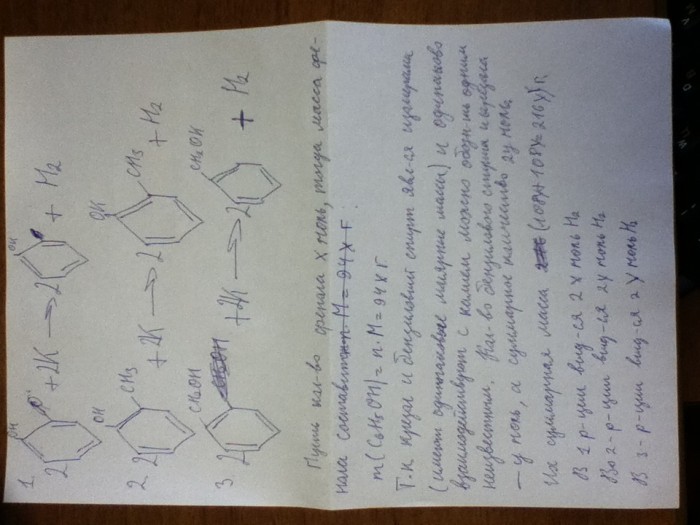 1. 2 OH + 2K → 2 OH + H₂
2. 2 OH CH₃ + 2K → 2 OH CH₃ + H₂
3. 2 CH₂OH + 2K → 2 CH₂OH + H₂
Пусть кол-во фенола x моль, тогда масса фе-
нола составит n·M = 94x г.
m(C₆H₅OH) = n·M = 94x г
Т.к крезол и бензиловый спирт явл-ся изомерами
(имеют одинаковые молярные массы) и одинаково
взаимодействуют с калием можно обозн-ть одним
неизвестным. Кол-во бензилового спирта и крезола
– y моль, а суммарное количество 2y моль
Их суммарная масса (108y + 108y = 216y) г.
В 1 р-ции выд-ся 2x моль H₂
Во 2-р-ции выд-ся 2y моль H₂
В 3-р-ции выд-ся 2y моль H₂